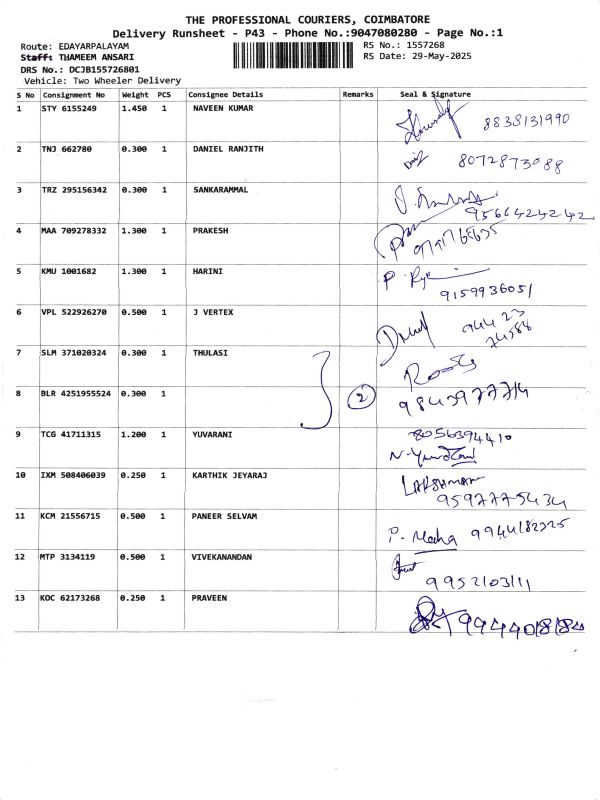 THE PROFESSIONAL COURIERS, COIMBATORE
Delivery Runsheet - P43 - Phone No.:9047080280 - Page No.:1
Route: EDAYARPALAYAM RS No.: 1557268
Staff: THAMEEM ANSARI RS Date: 29-May-2025
DRS No.: DCJB155726801
Vehicle: Two Wheeler Delivery
S No Consignment No Weight PCS Consignee Details Remarks Seal & Signature
1 STY 6155249 1.450 1 NAVEEN KUMAR 8838131990
2 TNJ 662780 0.300 1 DANIEL RANJITH 8072873088
3 TRZ 295156342 0.300 1 SANKARAMMAL 9566424242
4 MAA 709278332 1.300 1 PRAKESH
5 KMU 1001682 1.300 1 HARINI 9159936051
6 VPL 522926270 0.500 1 J VERTEX 94423
74588
7 SLM 371020324 0.300 1 THULASI
8 BLR 4251955524 0.300 1 2 9843977714
9 TCG 41711315 1.200 1 YUVARANI 8056394410
10 IXM 508406039 0.250 1 KARTHIK JEYARAJ LAKSHMAN
9597775434
11 KCM 21556715 0.500 1 PANEER SELVAM P. Megha 9944182325
12 MTP 3134119 0.500 1 VIVEKANANDAN
9952103111
13 KOC 62173268 0.250 1 PRAVEEN 9944018184